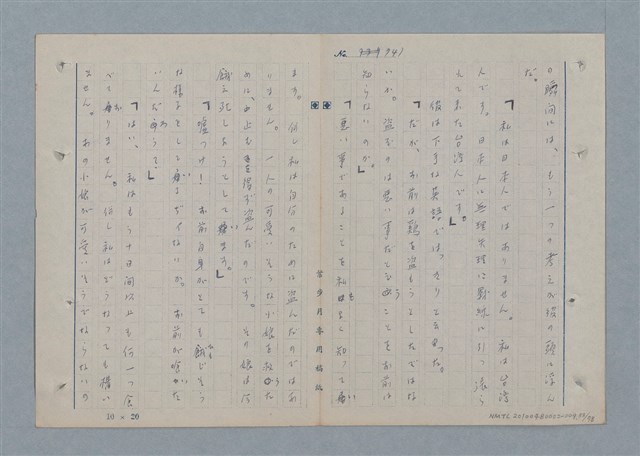 の瞬間には、もう一つの考えが彼の頭に浮ん
だ。
「私は日本人ではありません。私は台湾
人です。日本人に無理矢理に戦線に引っ張ら
れて来た台湾人です。」
彼は下手な英語ではっきりと言った。
「だが、お前は鶏を盗もうとしたではな
いか。盗むのは悪い事だと言うことをお前は
知らないのか。」
「悪い事であることを私はよく知ってい
ます。但し私は自分のために盗んだのではあ
りません。一人の可愛いそうな小娘を救うた
めに、止むを得ず盗んだのです。その娘は
餓え死しようとしています。」
「嘘つけ! お前自身がとても餓じそう
な様子をしているぢゃないか。お前が喰いた
いんだろう!」
「はい、私はもう十日間以上も何一つ食
べて居りません。但し私はどうなっても構い
ません。あの小娘が可愛いそうでならないの
葉步月専用稿紙
10 × 20
No